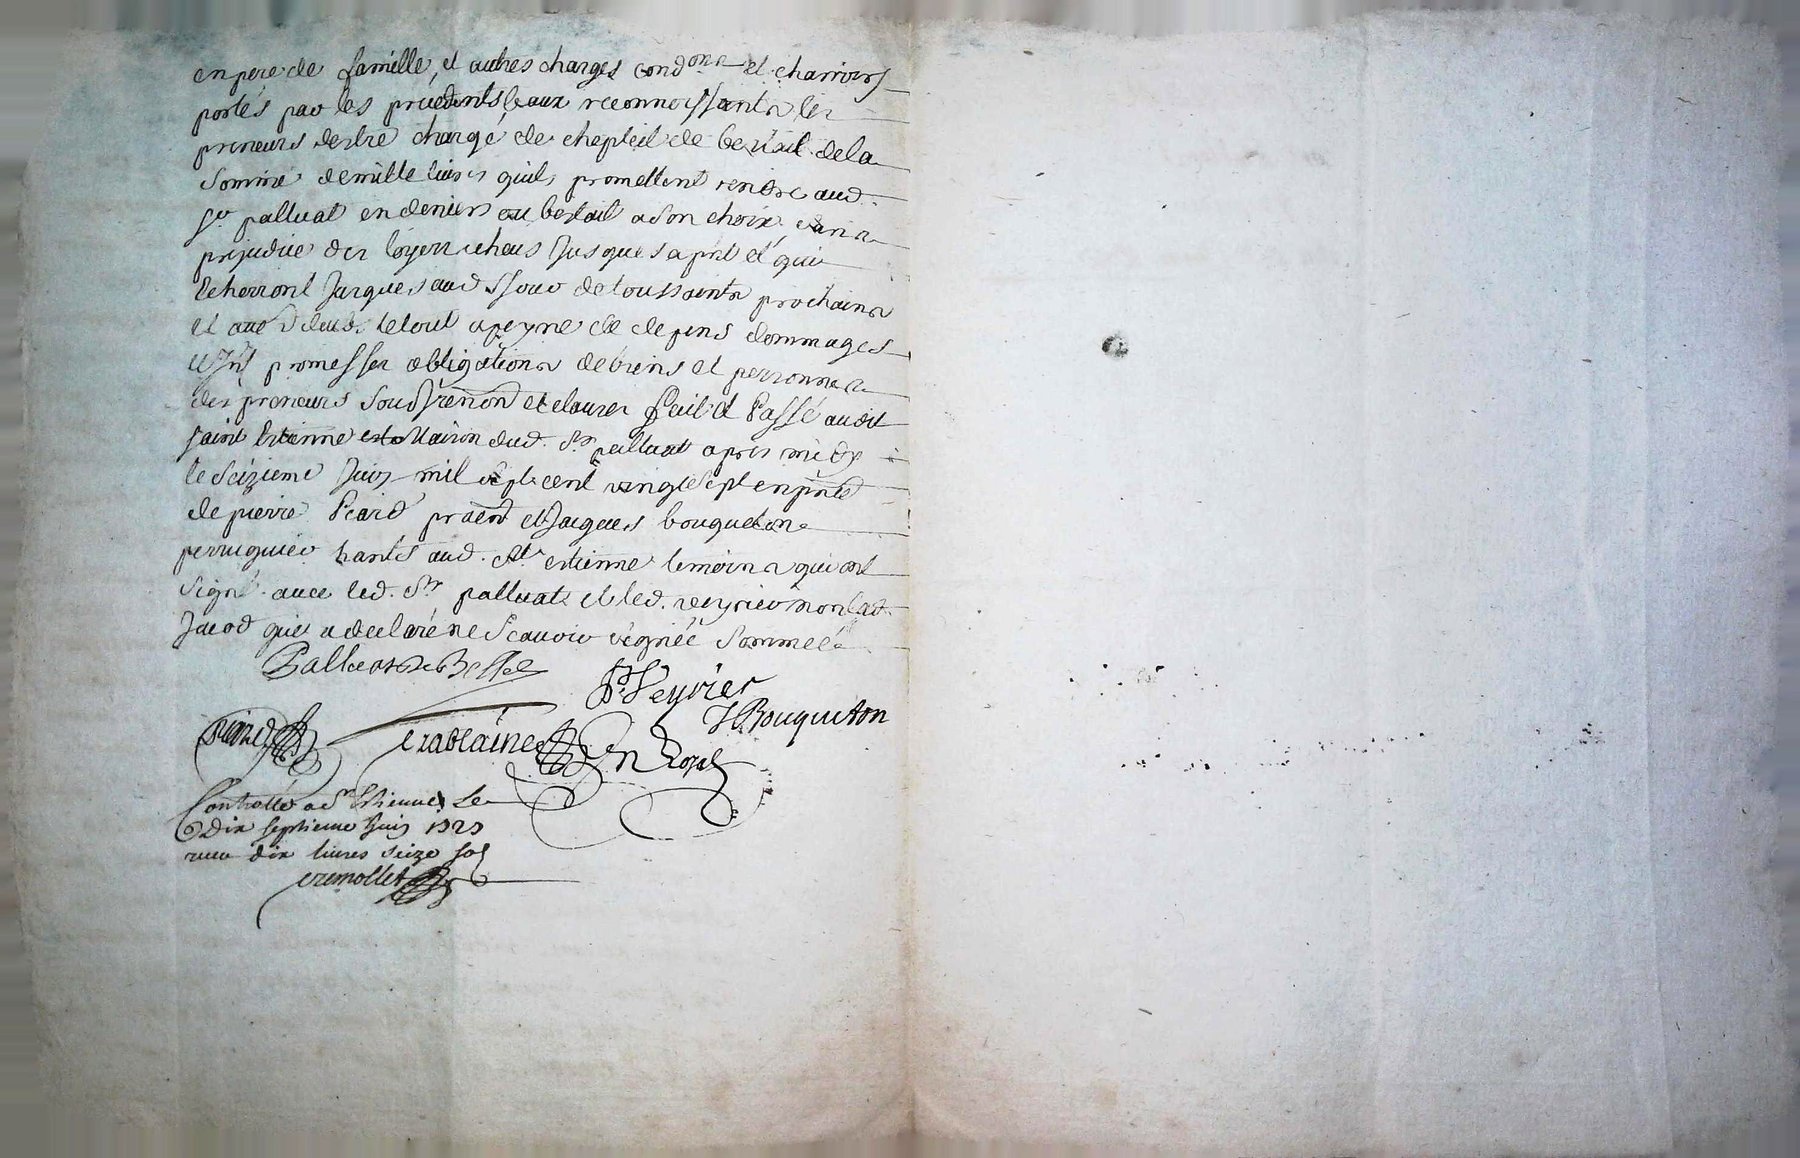 en pere de famille, et autres charges cond.ons et charrois
portés par les precedents beaux reconnoissants les
preneurs destre chargé de chepteil de bestail de la
somme de mille livres quils promettent rendre aud.
Sr palluat en deniers ou bestail a son choix, sans
prejudice des loyers echeus jusques a pnt et qui
echerront jusques aud jour de toussaints prochains
et aud le tout a peyne de depens dommages
promesses obligations de biens et personnes
des preneurs soub renon et clauses fait et Passé audit
saint Estienne Maison dud. Sr palluat apres midy
le seizieme juin mil sept cent vingt sept en pnce
de pierre Picard praticn et Jacques bouqueton
perruquier hants aud. St. estienne temoins qui ont
signé avec led. Sr palluat et led. veyrier non lad.
Jacod qui a declaré ne scavoir signer sommée
Palluat De Besset
P. Veyrier
Picard
J Bouqueton
crablaine
Nre Royal
Controllé a St Estienne Le
Dix septieme Juin 1727
receu dix livres seize sols
cremollet